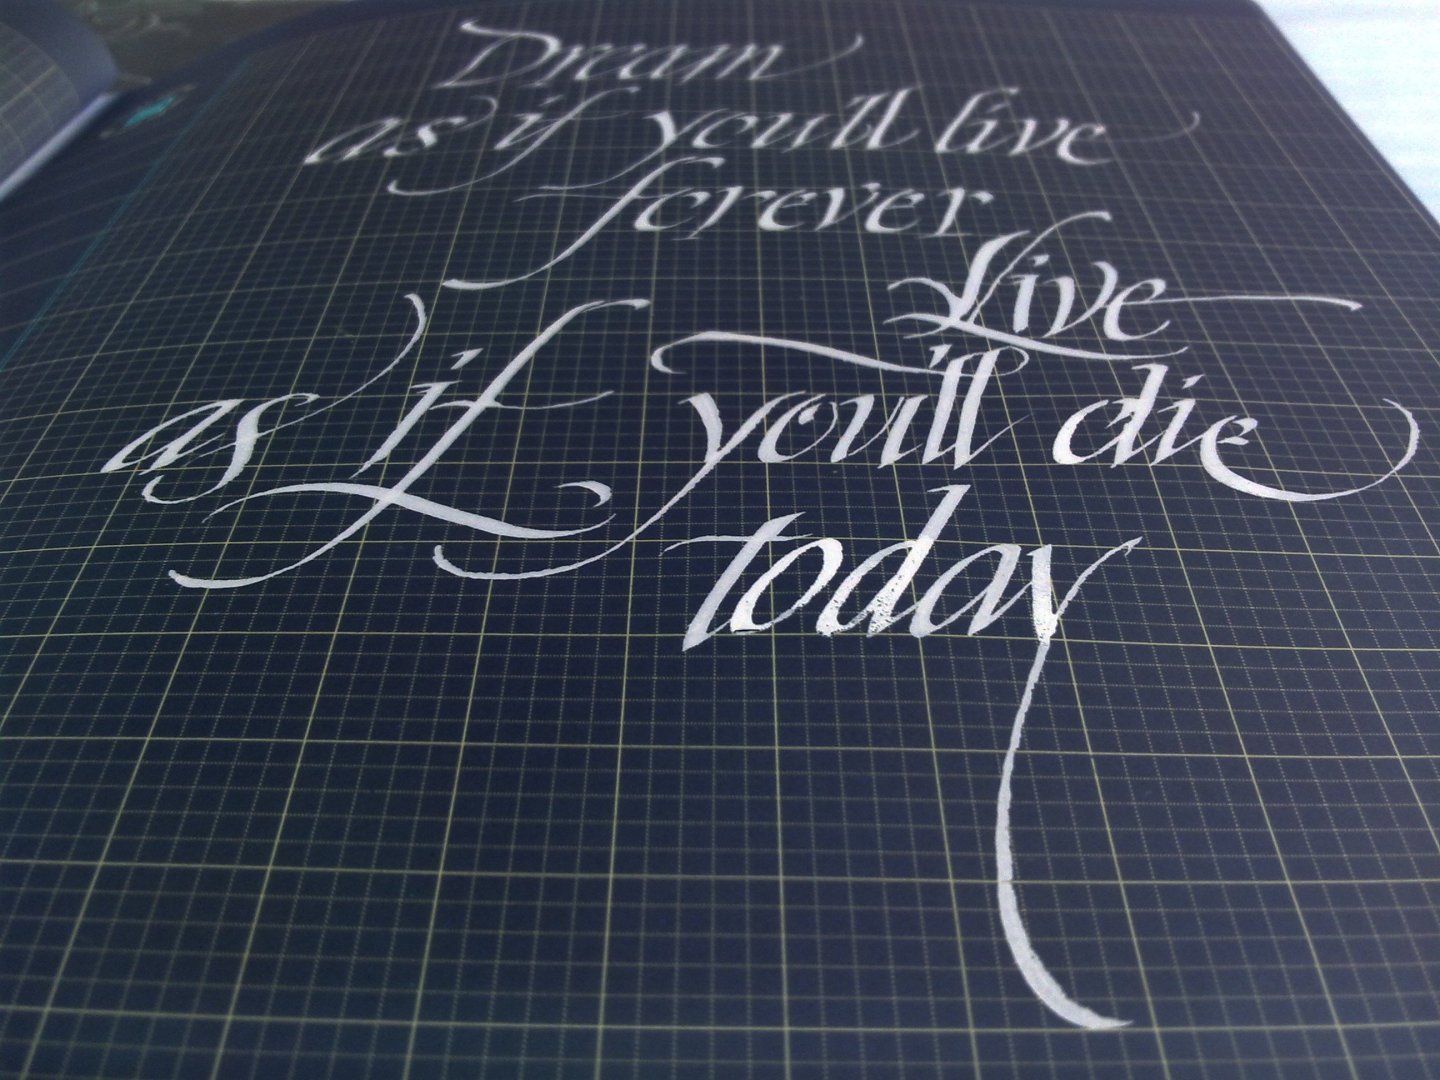 Dream
as if you'll live
forever
Live
as if you'll die
today